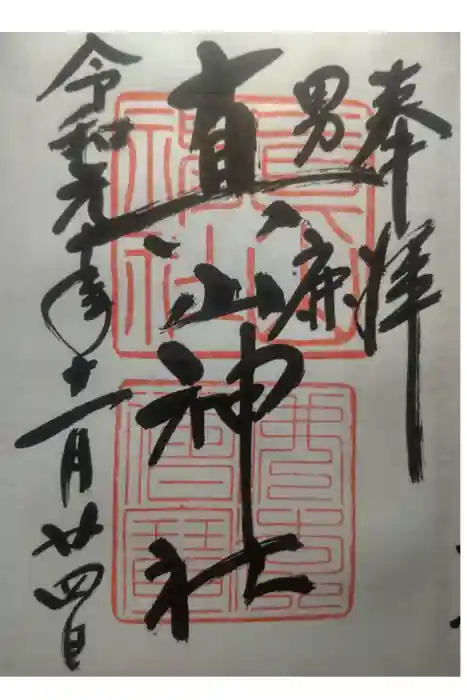 奉拝
男鹿
真山神社
令和元年十一月廿四日
真山
神社